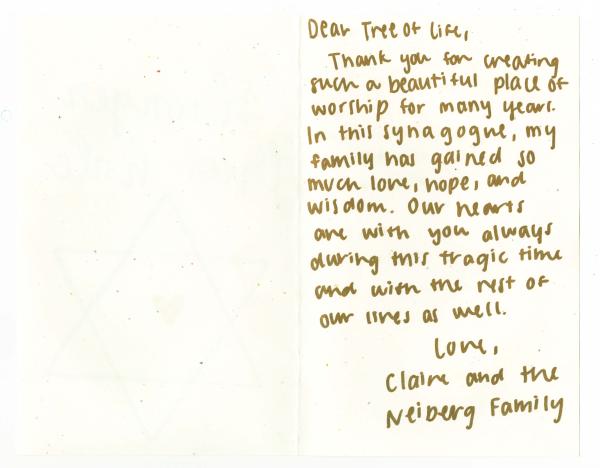 Dear Tree of Life,
Thank you for creating
such a beautiful place of
worship for many years.
In this synagogue, my
family has gained so
much love, hope, and
wisdom. Our hearts
are with you always
during this tragic time
and with the rest of
our lives as well.
Love,
Claire and the
Neiberg Family